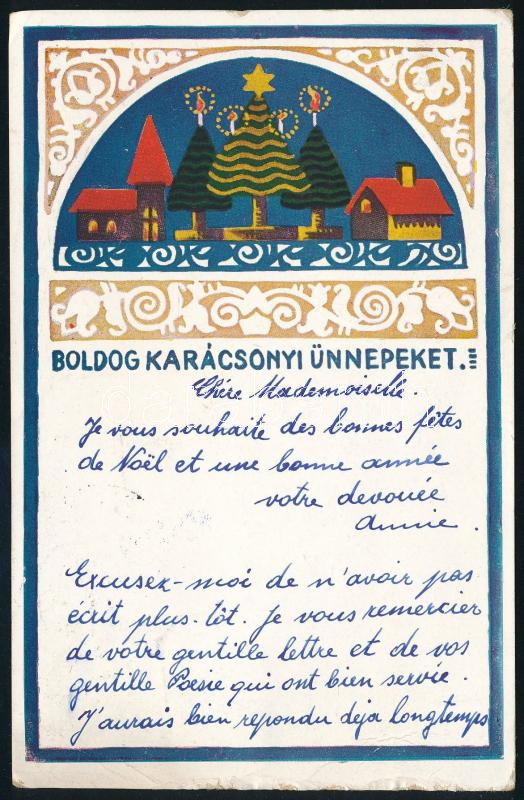 BOLDOG KARÁCSONYI ÜNNEPEKET.
Chére Mademoiselle.
Je vous souhaite des bonnes fêtes
de Noël et une bonne année
votre devouée
Annie.
Excusez-moi de n'avoir pas
écrit plus-tôt. Je vous remercier
de votre gentille lettre et de vos
gentille Poesie qui ont bien servie.
J'aurais bien repondu deja longtemps